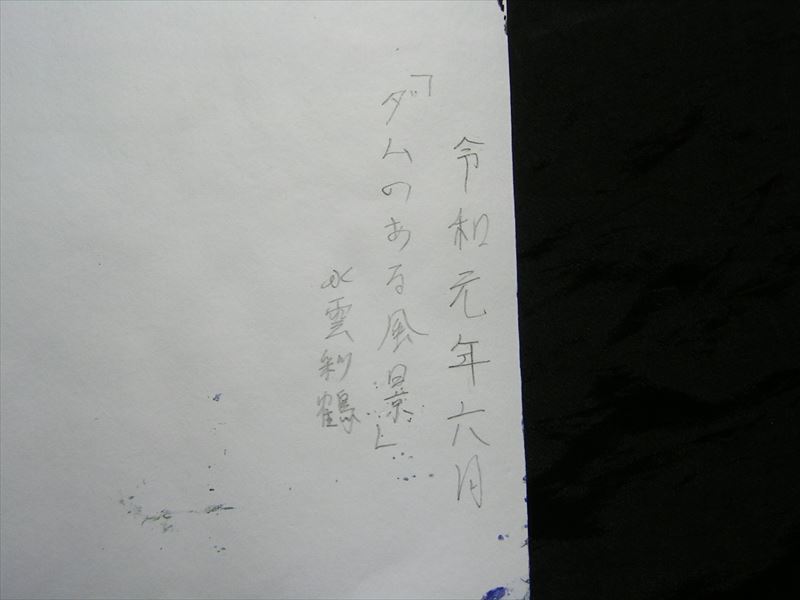 令和元年六月
「ダムのある風景」
水雲利鶴